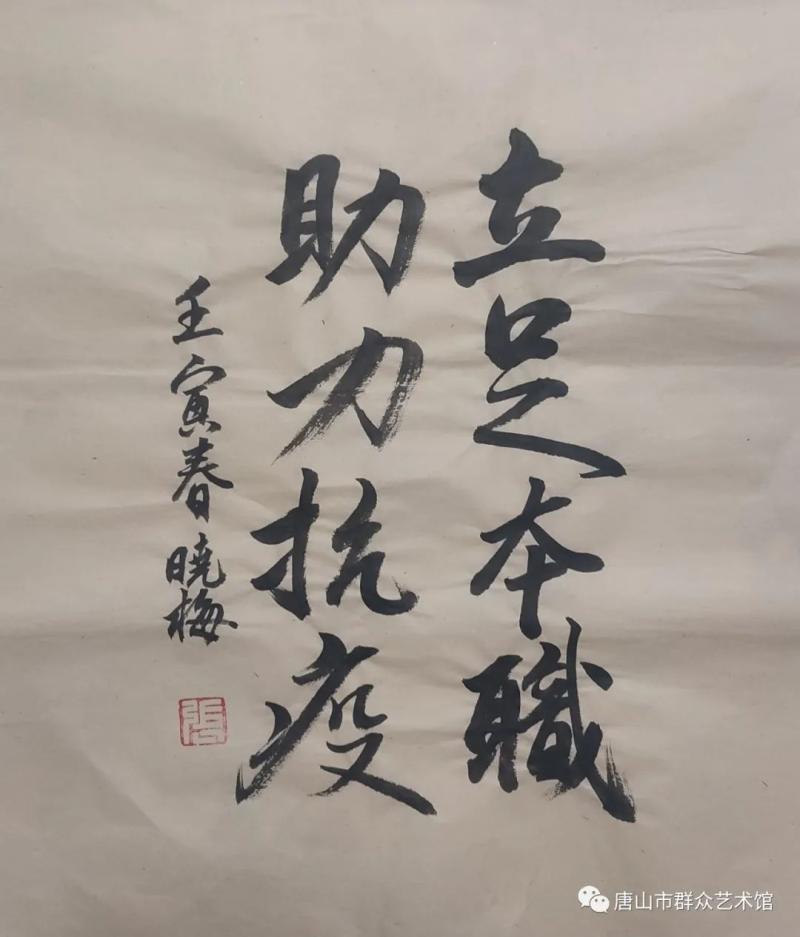 立足本職
助力抗疫
壬寅春曉梅
唐山市群众艺术馆